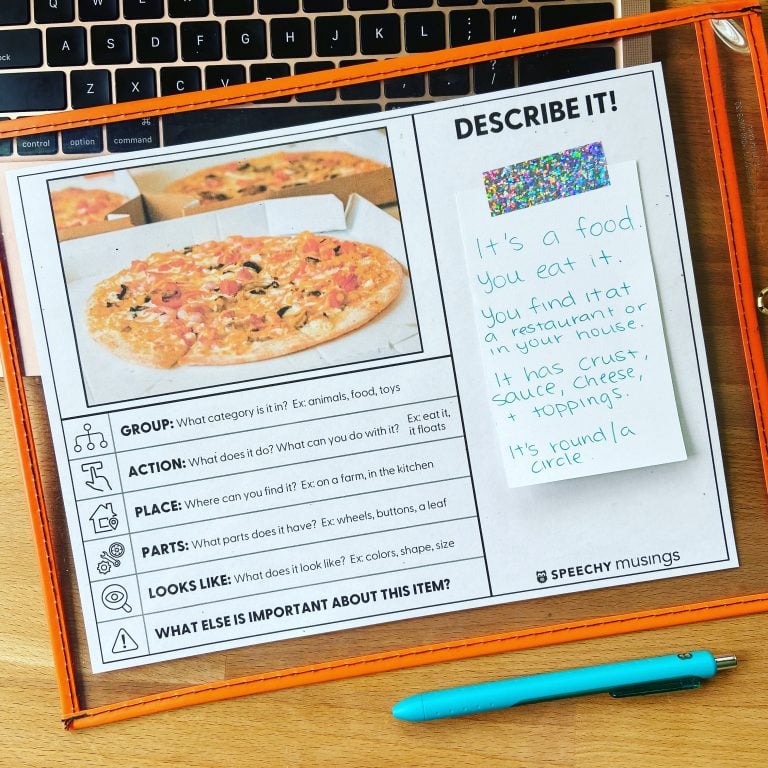 A S D F G H J K L ; "
'
Z X C V B N M ?
/
control option ⌘
command
DESCRIBE IT!
It's a food.
You eat it.
You find it at
a restaurant or
in your house.
It has crust,
sauce, cheese,
+ toppings.
It's round/a
circle.
GROUP: What category is it in? Ex: animals, food, toys
ACTION: What does it do? What can you do with it? Ex: eat it,
it floats
PLACE: Where can you find it? Ex: on a farm, in the kitchen
PARTS: What parts does it have? Ex: wheels, buttons, a leaf
LOOKS LIKE: What does it look like? Ex: colors, shape, size
WHAT ELSE IS IMPORTANT ABOUT THIS ITEM?
SPEECHY musings